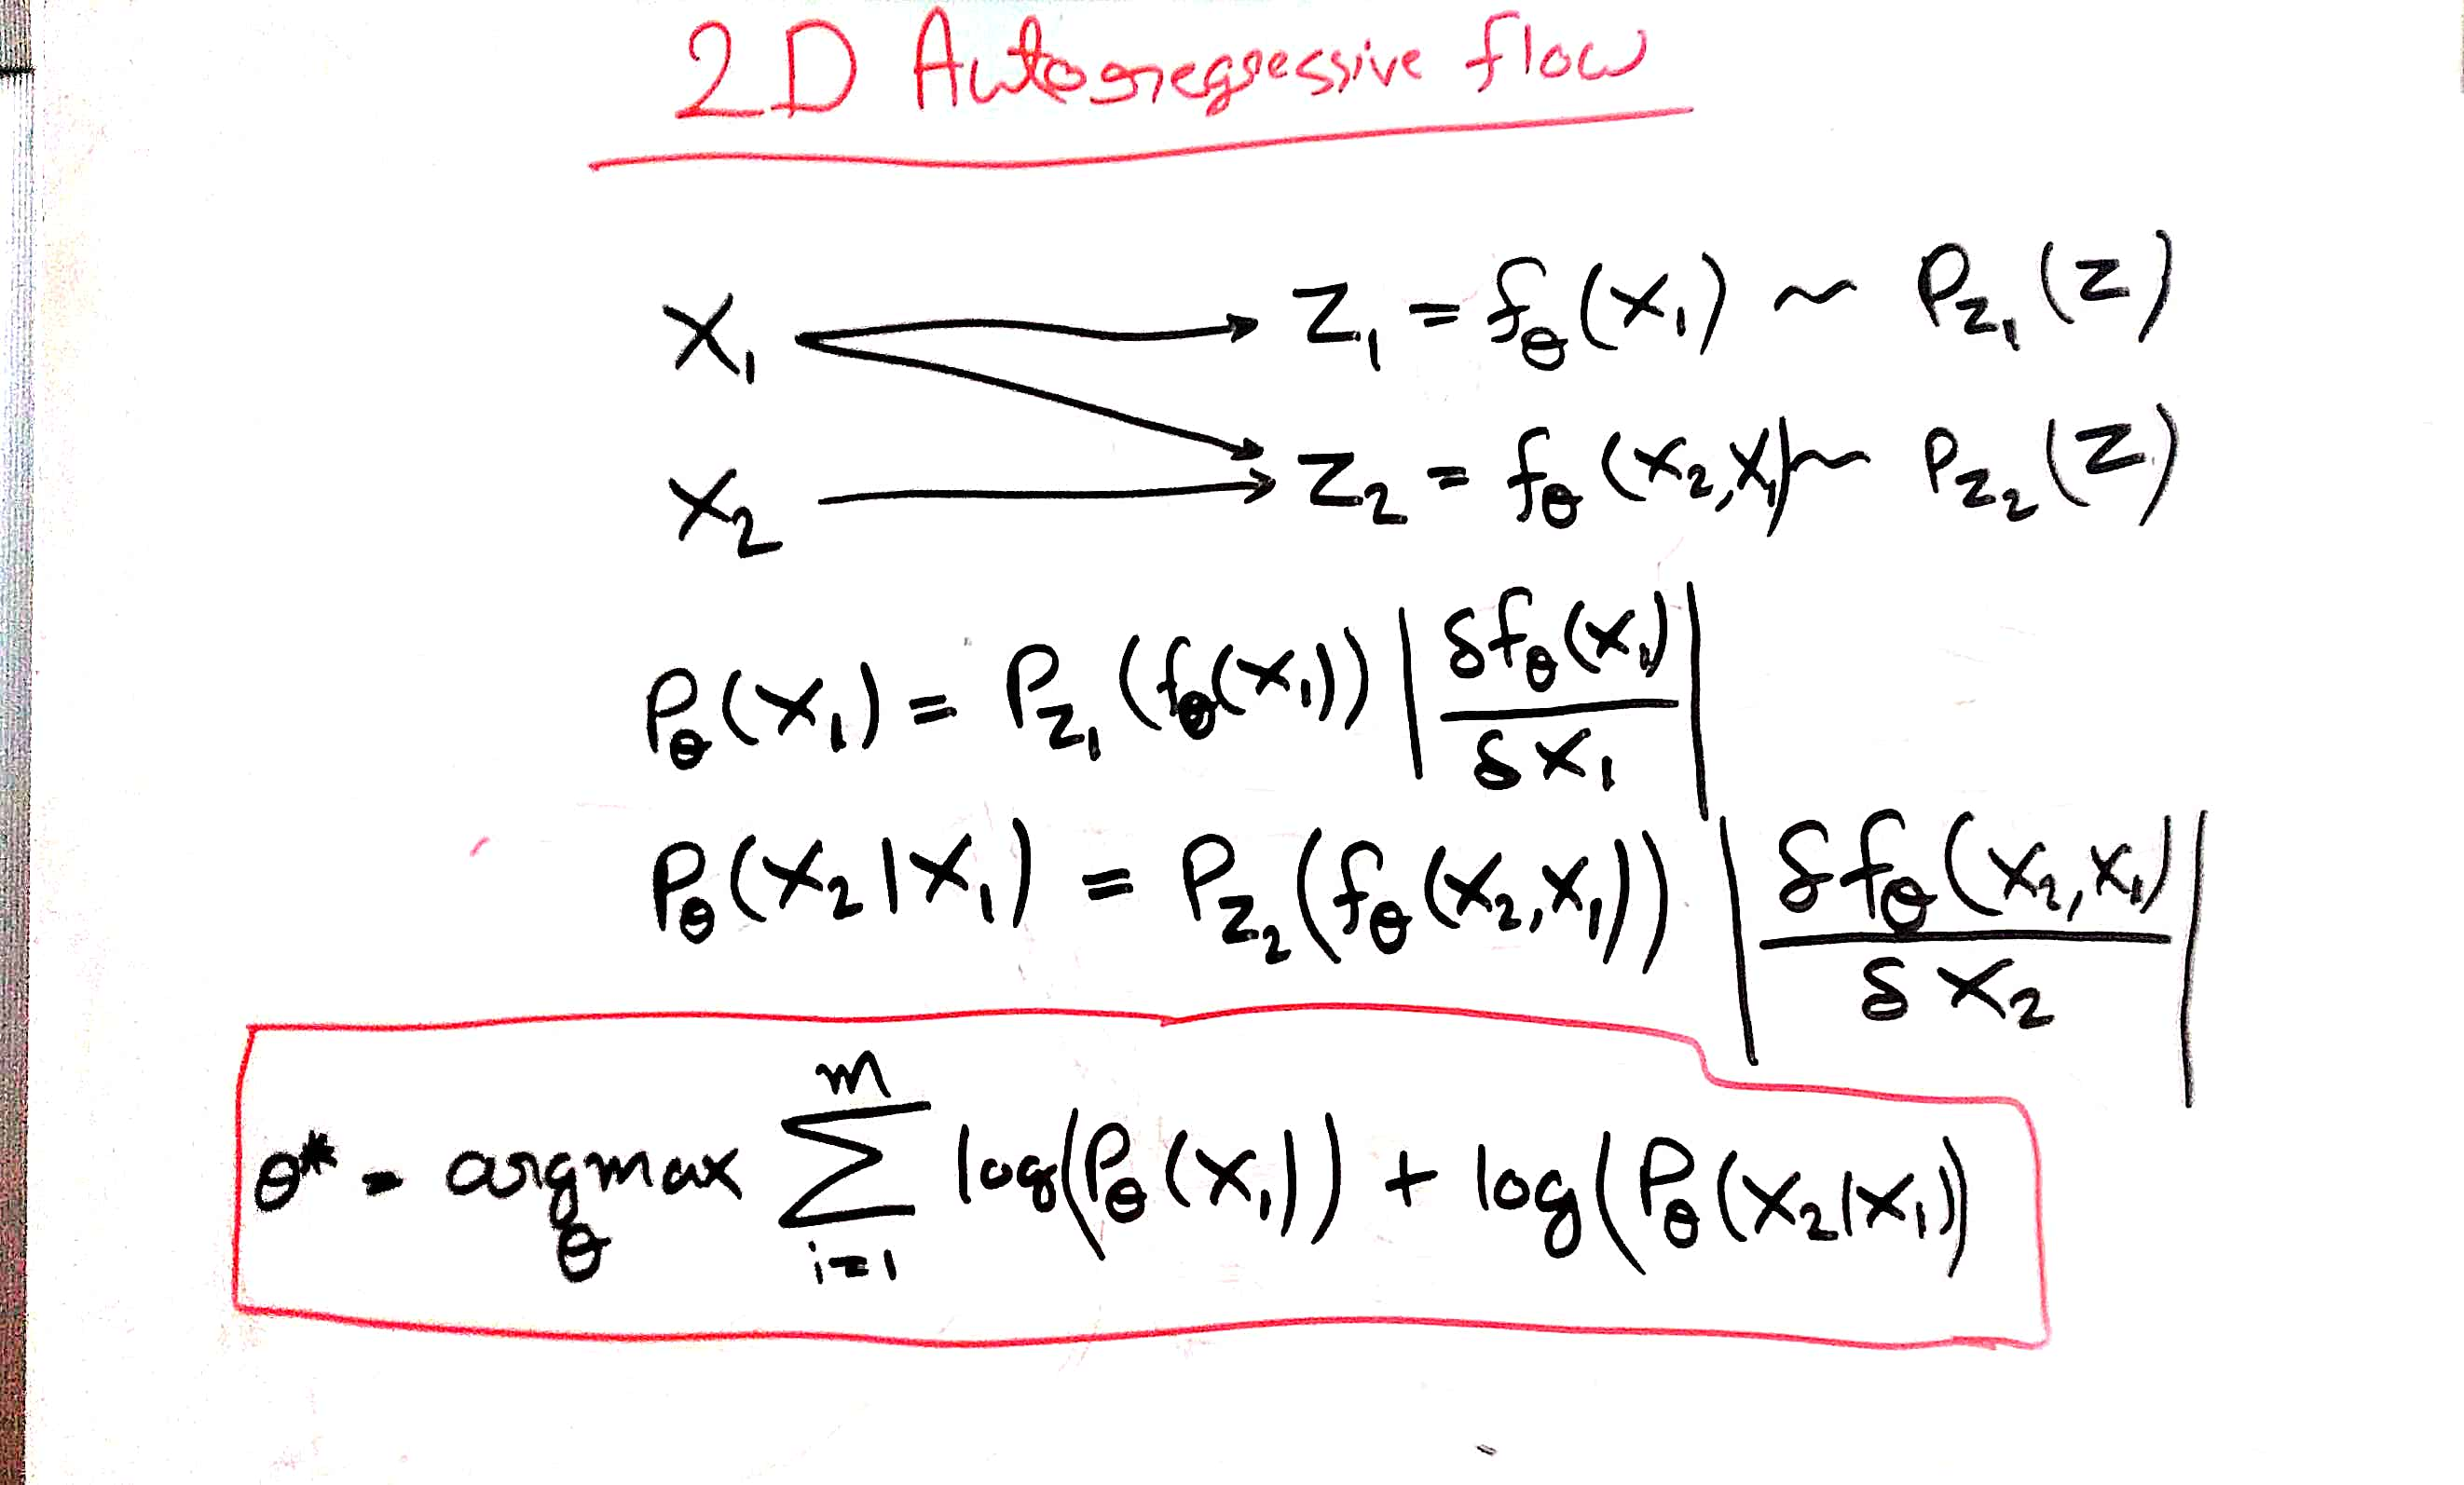 2D Autoregressive flow
X₁ → Z₁ = fθ(X₁) ~ P_Z₁(Z)
X₂ → Z₂ = fθ(X₂,X₁) ~ P_Z₂(Z)
Pθ(X₁) = P_Z₁(fθ(X₁)) |δfθ(X₁)/δX₁|
Pθ(X₂|X₁) = P_Z₂(fθ(X₂,X₁)) |δfθ(X₂,X₁)/δX₂|
θ* = argmax_θ Σ_{i=1}^{m} log(Pθ(X₁)) + log(Pθ(X₂|X₁))